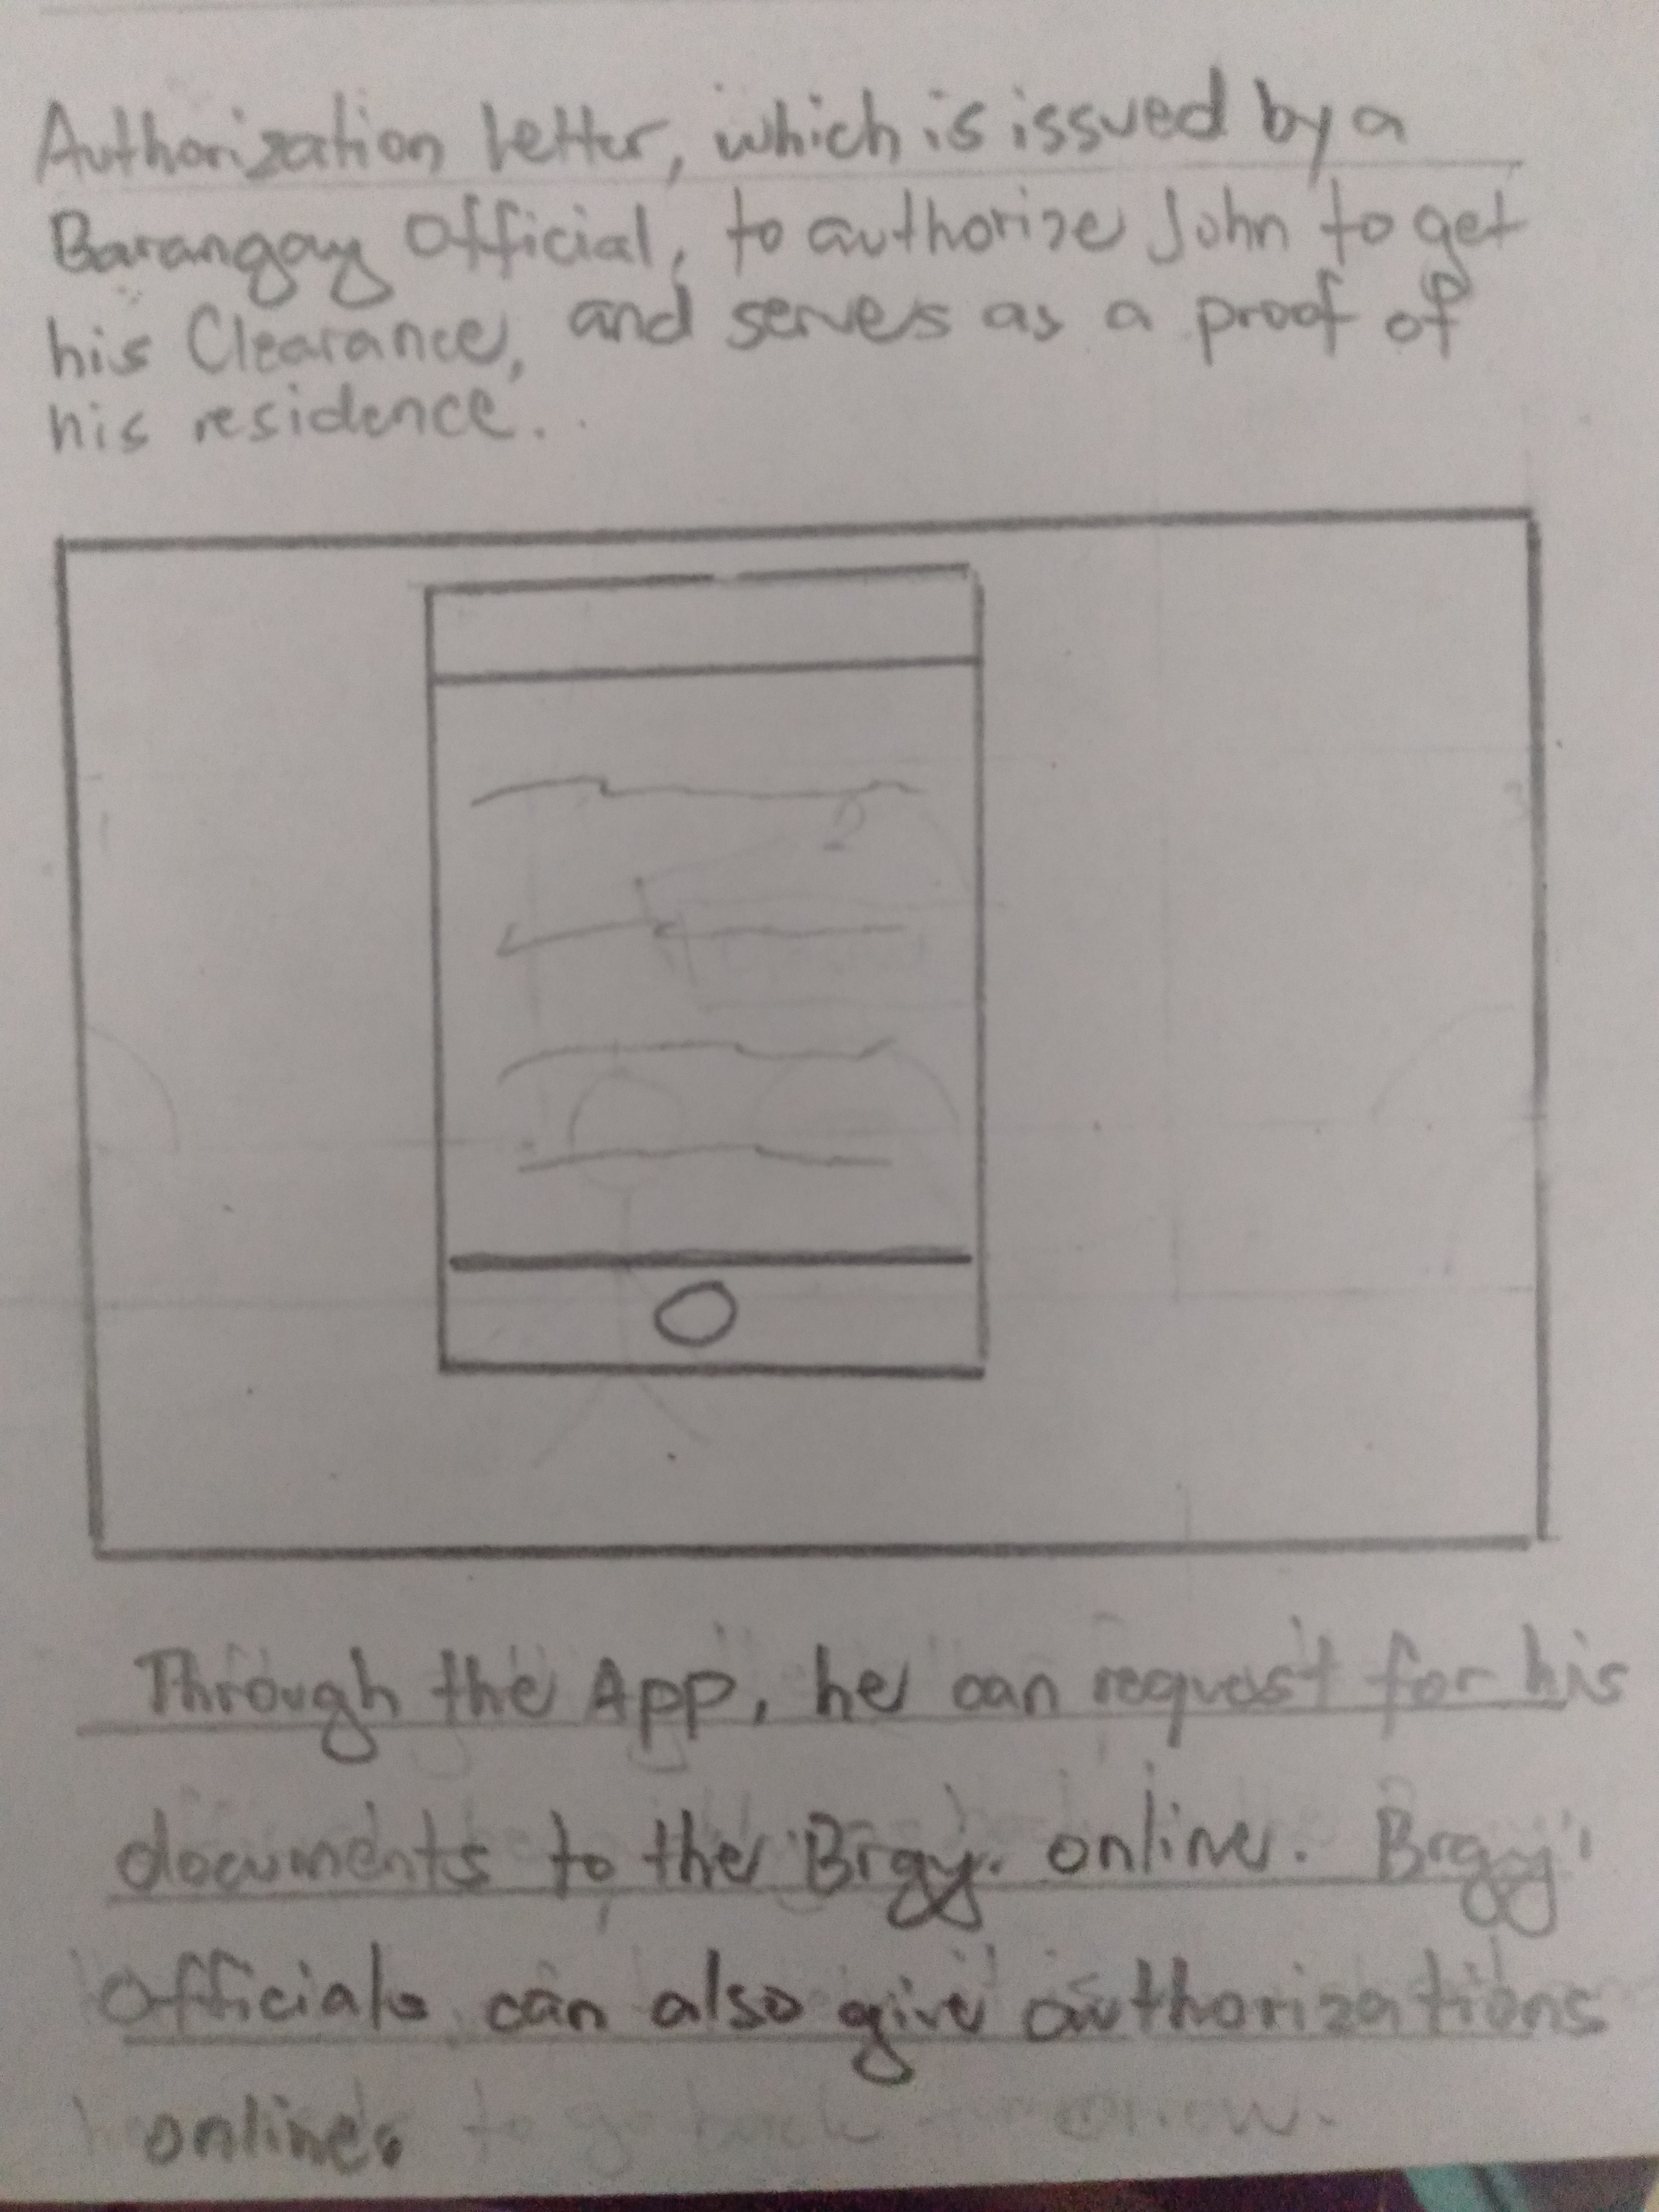 Authorization letter, which is issued by a
Barangay Official, to authorize John to get
his Clearance, and serves as a proof of
his residence.
Through the App, he can request for his
documents to the Brgy. online. Brgy
Officials can also give authorizations
online. to go back